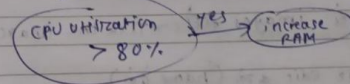 CPU Utilization
> 80%
yes
increase
RAM